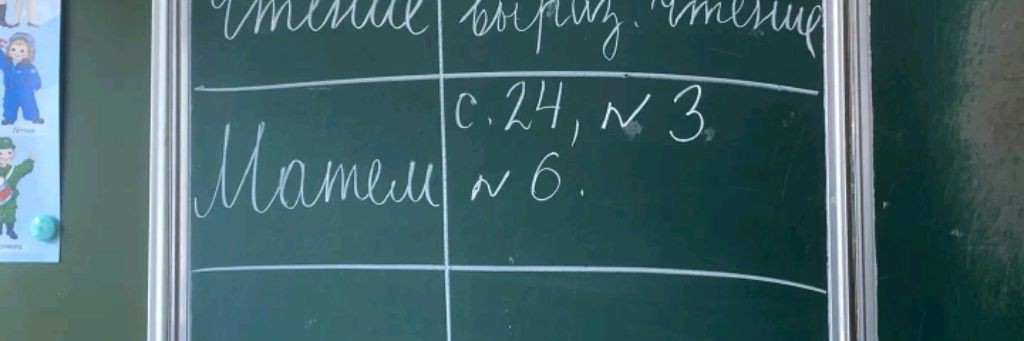 Чтение выраз. чтение
Матем с. 24, № 3
№ 6.
Лётчик